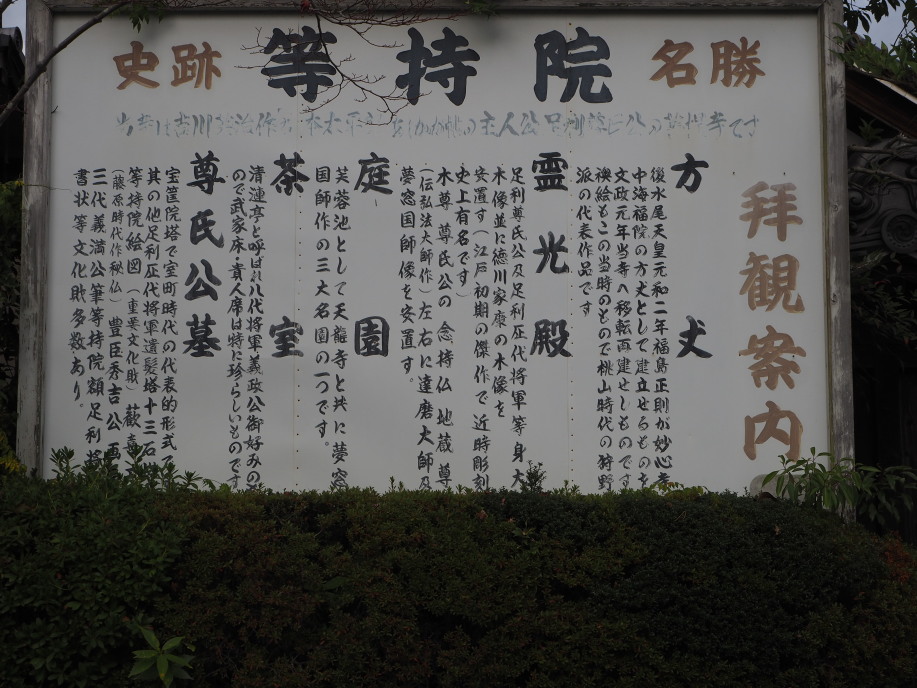 史跡 等持院 名勝
は吉川英治作 の主人公足利尊氏公の 寺です
拝観案内
方丈
後水尾天皇元和二年福島正則が妙心寺
中海福院の方丈として建立せるものを
文政元年当寺へ移転再建せしものです
襖絵もこの当時のもので桃山時代の狩野
派の代表作品です
霊光殿
足利尊氏公及足利歴代将軍等身大
木像並に徳川家康の木像を
安置す(江戸初期の傑作で近時彫刻
史上有名です)
木尊氏公の 念持仏 地蔵尊
(伝弘法大師作)左右に達磨大師及
夢窓国師像を安置す。
庭園
芙蓉池として天龍寺と共に夢窓
国師作の三大名園の一つです。
茶室
清漣亭と呼ばれ八代将軍義政公御好みの
ので武家床・貴人席は特に珍らしいものです
尊氏公墓
宝筐院塔で室町時代の代表的形式
其の他足利歴代将軍遺髪塔十三石
等持院絵図(重要文化財)歓喜
(藤原時代作秘仏) 豊臣秀吉公画
三代義満公筆等持院額足利
書状等文化財多数あり。